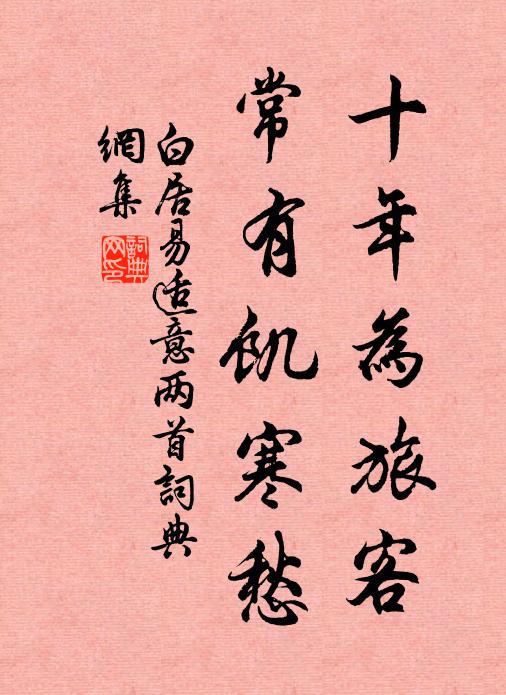 十年為旅客
常有飢寒愁
白居易适意两首詞典
網集
詞典网印